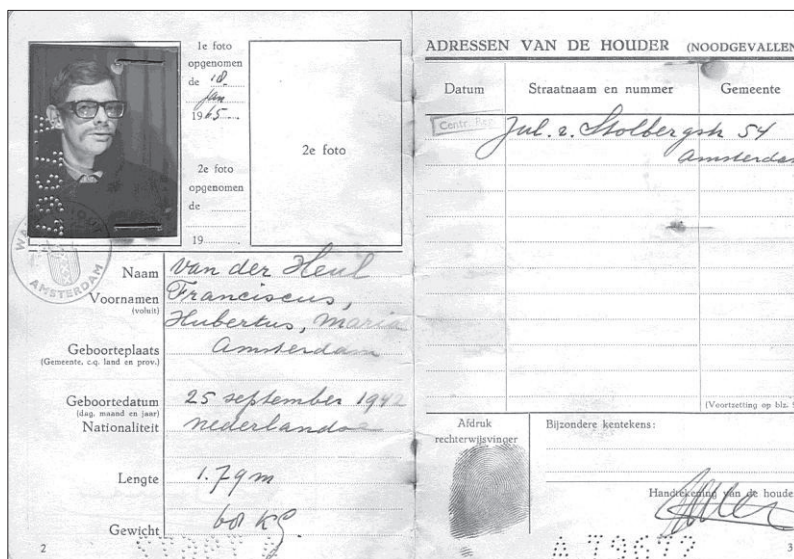 1e foto
opgenomen
de 18
jan
1965
2e foto
opgenomen
de
19
2e foto
AMSTERDAM
Naam van der Heul
Voornamen Franciscus,
(voluit) Hubertus, Maria
Geboorteplaats Amsterdam
(Gemeente, c.q. land en prov.)
Geboortedatum 25 september 1942
(dag, maand en jaar)
Nationaliteit nederlandse
Lengte 1.79 m
Gewicht kg.
2
ADRESSEN VAN DE HOUDER (NOODGEVALLEN
Datum Straatnaam en nummer Gemeente
Centr.
Jul. v. Stolbergstr 54
Amsterdam
(Voortzetting op blz.
Afdruk
rechterwijsvinger
Bijzondere kentekens:
Handtekening van de houder
3